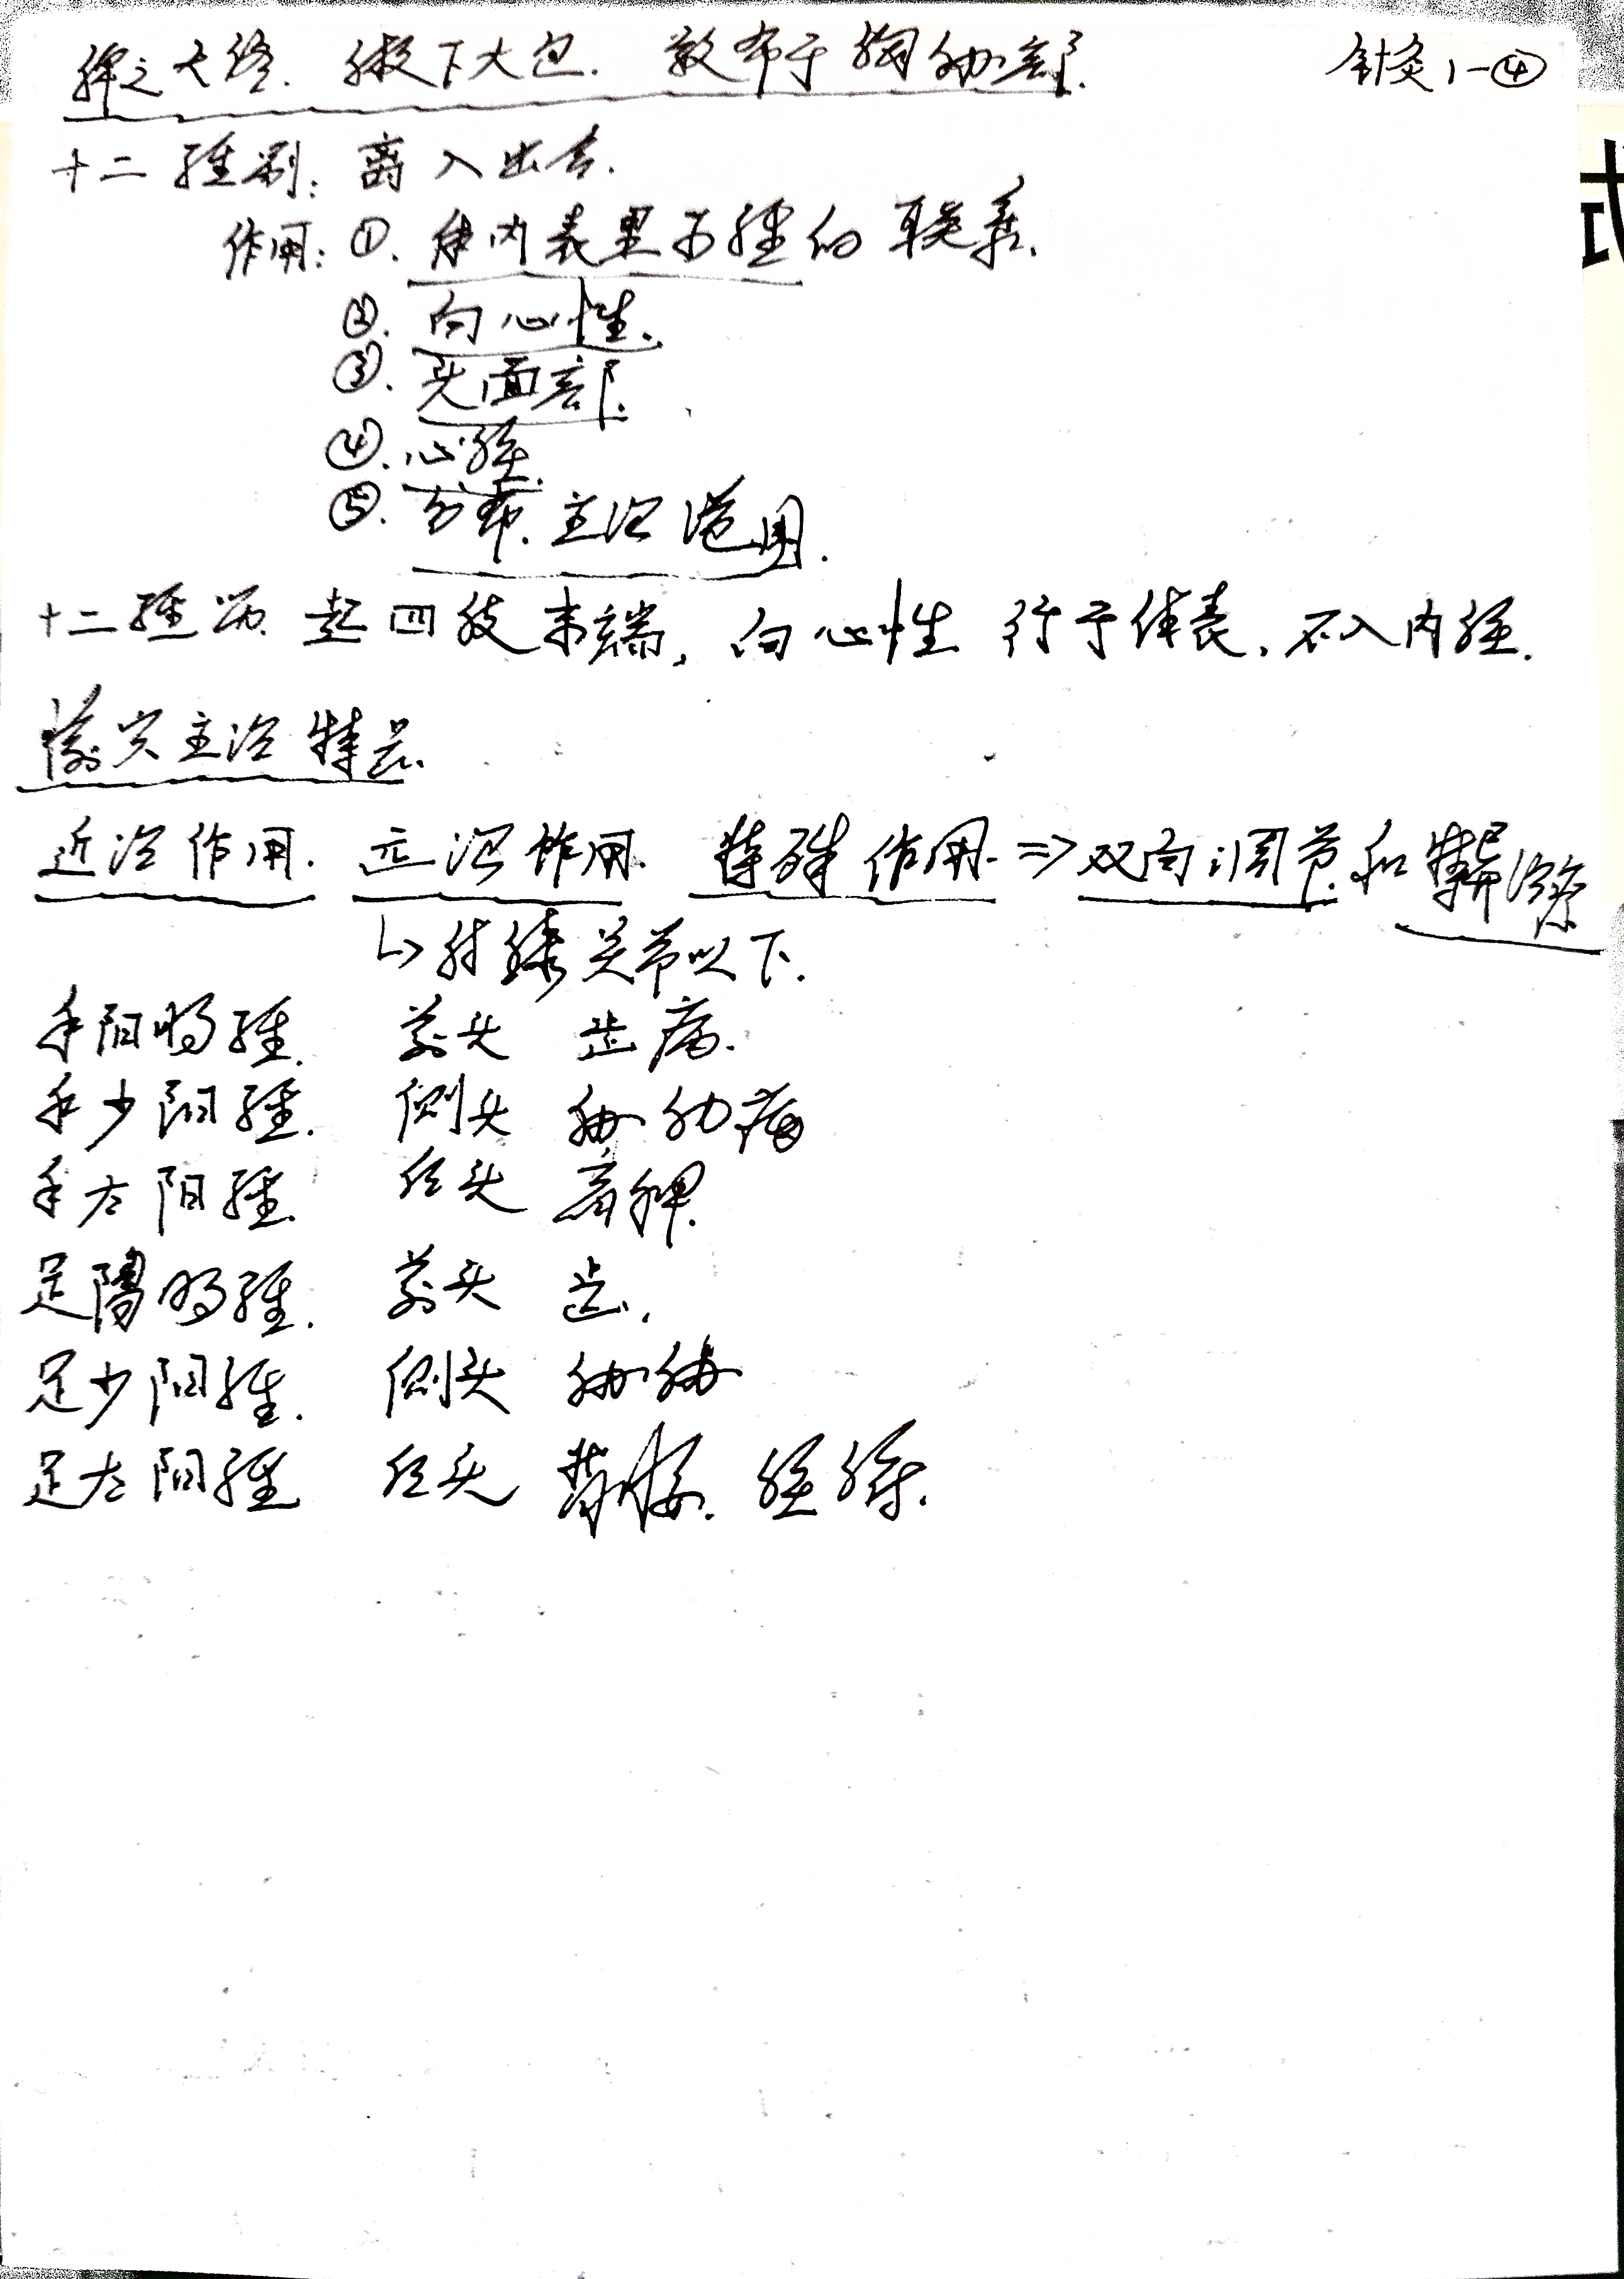 脾之大络. 腋下大包. 散布于胸胁部.
针灸1-④
十二经别: 离入出合.
式
作用: ①. 体内表里两经的联系.
②. 向心性.
③. 头面部.
④. 心经.
⑤. 分布. 主治范围.
十二经筋. 起四肢末端, 向心性 行于体表. 不入内经.
腧穴主治特点.
近治作用. 远治作用. 特殊作用. => 双向调节. 和 特异治疗
↳ 肘膝关节以下.
手阳明经. 前头 齿病.
手少阳经. 侧头 胁肋病
手太阳经. 后头 肩胛.
足陽明经. 前头 齿.
足少阳经. 侧头 胁
足太阳经 后头 背腰.